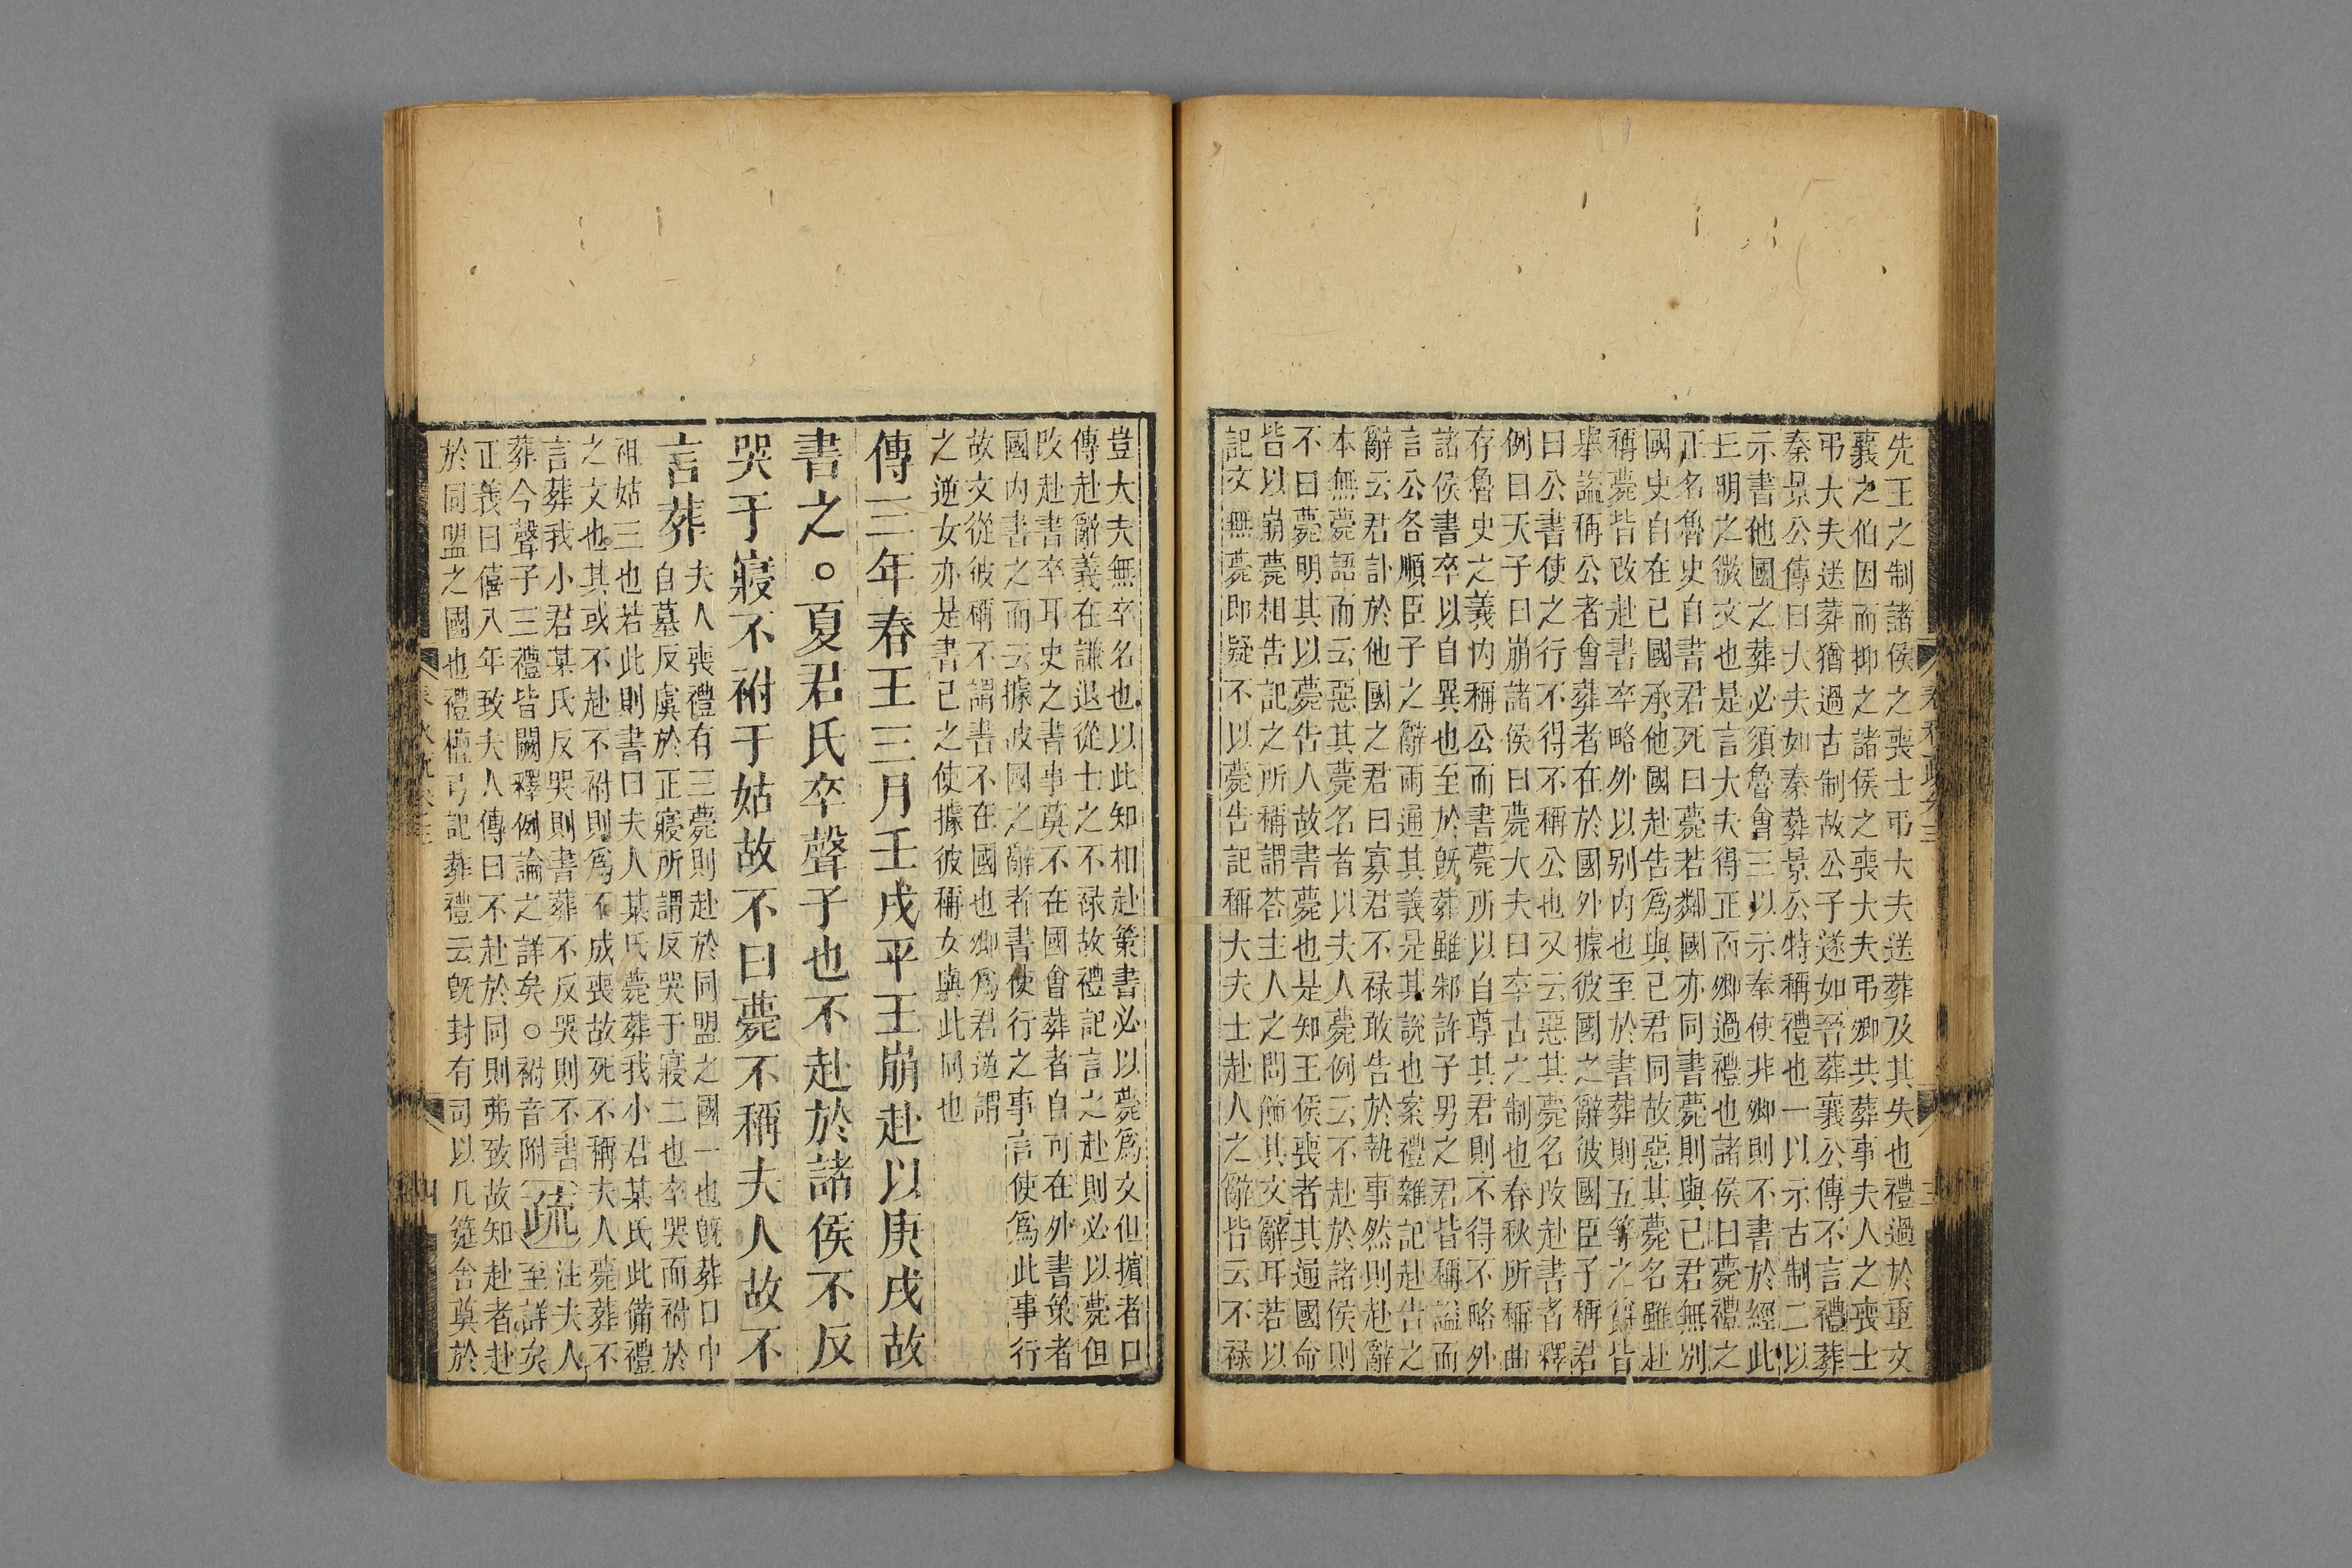 先王之制諸侯之喪士弔大夫送葬及其失也禮過於重文
襄之伯因而抑之諸侯之喪大夫弔卿共葬事夫人之喪士
弔大夫送葬猶過古制故公子遂如晉葬襄公傳不言禮葬
秦景公傳曰大夫如秦葬景公特稱禮也一以示古制二以
示書他國之葬必須魯會三以示奉使非卿則不書於經此
丘明之微文也是言大夫得正而卿過禮也諸侯曰薨禮之
正名魯史自書君死曰薨若鄰國亦同書薨則與己君無別
國史自在己國承他國赴告爲與己君同故惡其薨名雖赴
稱薨皆改赴書卒略外以別內也至於書葬則五等之爵皆
舉謚稱公者會葬者在於國外據彼國之辭彼國臣子稱君
曰公書使之行不得不稱公也又云惡其薨名改赴書者釋
例曰天子曰崩諸侯曰薨大夫曰卒古之制也春秋所稱曲
存魯史之義內稱公而書薨所以自尊其君則不得不略外
諸侯書卒以自異也至於旣葬雖邾許子男之君皆稱謚而
言公各順臣子之辭兩通其義是其說也案禮雜記赴告之
辭云君訃於他國之君曰寡君不祿敢告於執事然則赴辭
本無薨語而云惡其薨名者以夫人薨例云不赴於諸侯則
不曰薨明其以薨告人故書薨也是知王侯喪者其通國命
皆以崩薨相告記之所稱謂荅主人之問飾其文辭耳若以
記文無薨即疑不以薨告記稱大夫士赴人之辭皆云不祿
豈大夫無卒名也以此知相赴策書必以薨爲文但擯者口
傳赴辭義在謙退從士之不祿故禮記言之赴則必以薨但
改赴書卒耳史之書事莫不在國會葬者自可在外書策者
國內書之而云據彼國之辭者書使行之事言使爲此事行
故文從彼稱不謂書不在國也卿爲君逆謂
之逆女亦是書己之使據彼稱女與此同也
傳三年春王三月壬戌平王崩赴以庚戌故
書之○夏君氏卒聲子也不赴於諸侯不反
哭于寢不祔于姑故不曰薨不稱夫人故不
言葬
夫人喪禮有三薨則赴於同盟之國一也旣葬日中
自墓反虞於正寢所謂反哭于寢二也卒哭而祔於
祖姑三也若此則書曰夫人某氏薨葬我小君某氏此備禮
之文也其或不赴不祔則爲不成喪故死不稱夫人薨葬不
言葬我小君某氏反哭則書葬不反哭則不書
葬今聲子三禮皆闕釋例論之詳矣○祔音附
疏
注夫人
至詳矣
正義曰僖八年致夫人傳曰不赴於同則弗致故知赴者赴
於同盟之國也禮檀弓記葬禮云旣封有司以几筵舍奠於